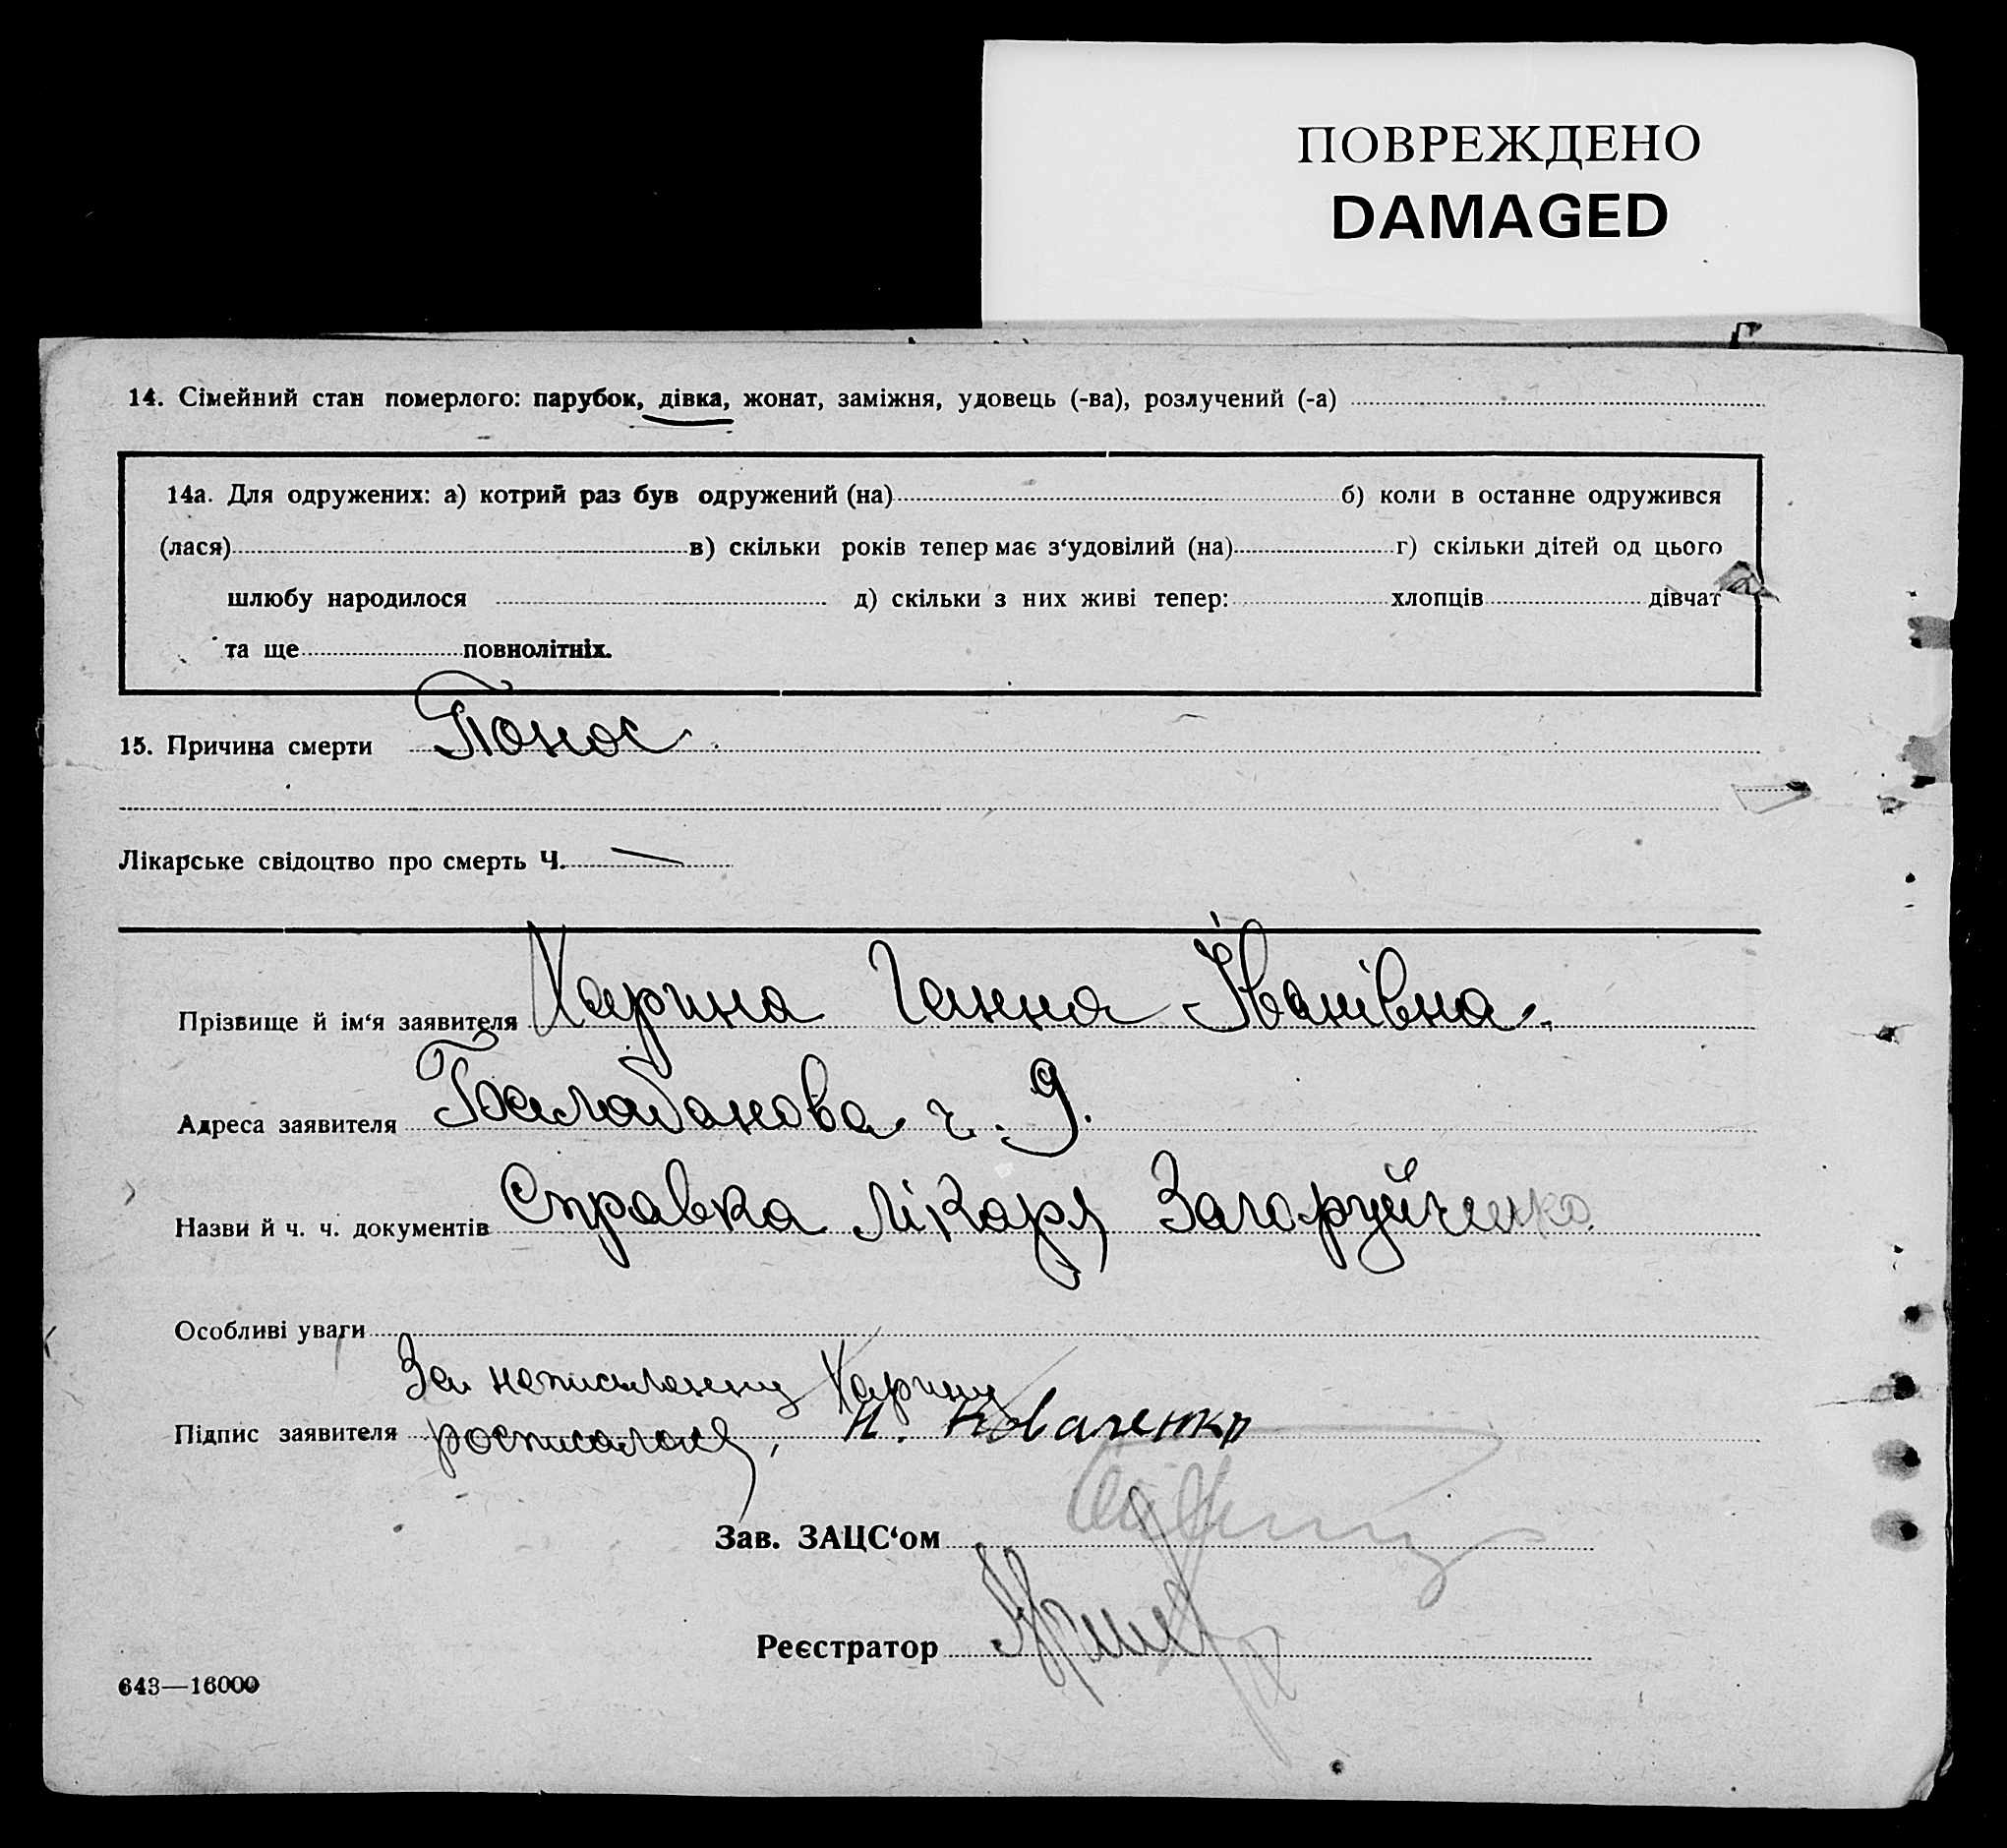 ПОВРЕЖДЕНО
DAMAGED
14. Сімейний стан померлого: парубок, дівка, жонат, заміжня, удовець (-ва), розлучений (-а)
14а. Для одружених: а) котрий раз був одружений (на) б) коли в останнє одружився
(лася) в) скільки років тепер має з‘удовілий (на) г) скільки дітей од цього
шлюбу народилося д) скільки з них живі тепер: хлопців дівчат
та ще повнолітніх.
15. Причина смерти Понос
Лікарське свідоцтво про смерть Ч. —
Прізвище й ім‘я заявителя Харина Ганна Іванівна.
Адреса заявителя Балабанова ч. 9.
Назви й ч. ч. документів Справка лікаря Загоруйченко
Особливі уваги
За неписьменну Харину
Підпис заявителя росписалася, Н. Коваченко
Зав. ЗАЦС‘ом
Реєстратор
643—16000